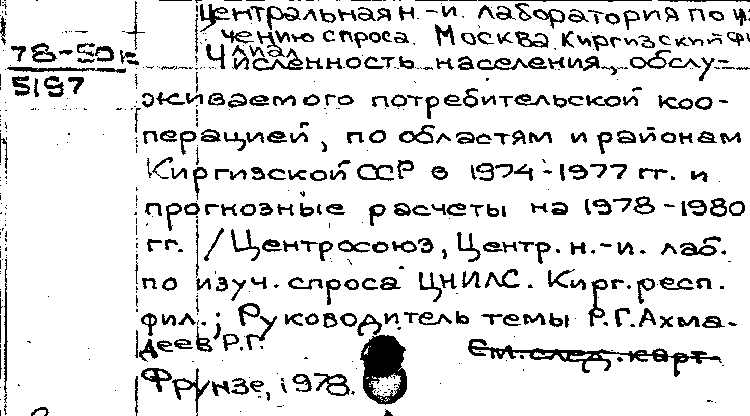 Центральная н.-и. лаборатория по из
чению спроса. Москва. Киргизский фи
лиал
78-50
5197
Численность населения, обслу-
живаемого потребительской коо-
перацией, по областям и районам
Киргизской ССР в 1974-1977 гг. и
прогнозные расчеты на 1978-1980
гг. / Центросоюз, Центр. н.-и. лаб.
по изуч. спроса ЦНИЛС. Кирг. респ.
фил.; Руководитель темы Р.Г. Ахма-
деев Р.Г.
См. след. карт.
Фрунзе, 1978.